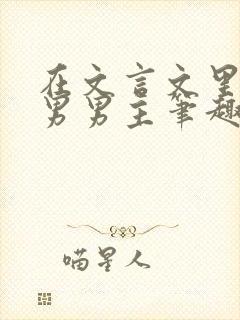 在文言文里
男男主笔趣
喵星人